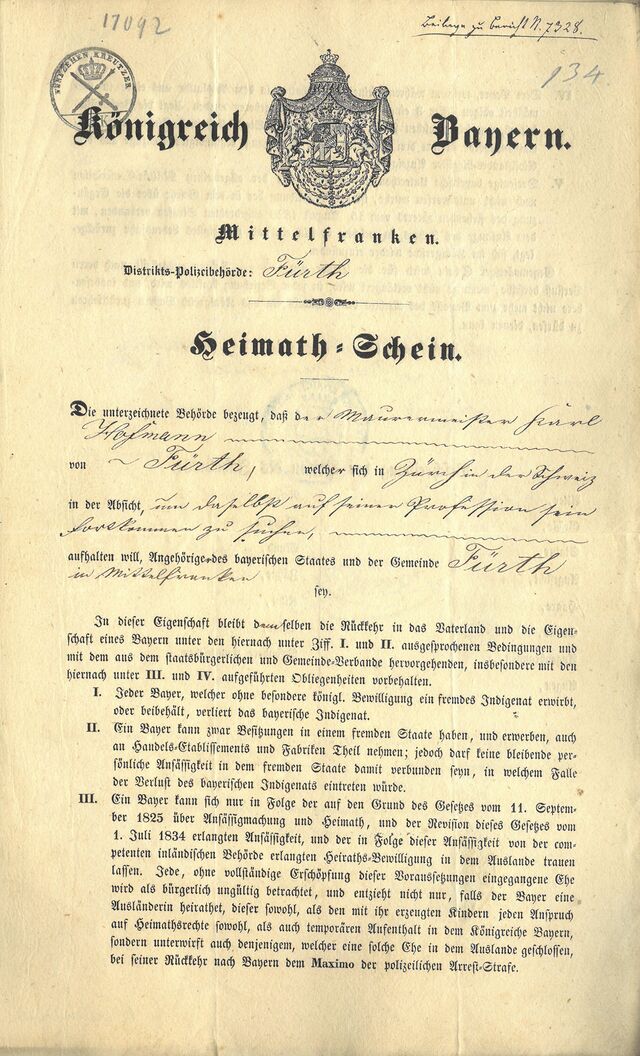 17092
Beilage zu Bericht N. 7328.
134.
FÜNFZEHEN KREUTZER
Königreich Bayern.
Mittelfranken.
Distrikts-Polizeibehörde: Fürth
Heimath-Schein.
Die unterzeichnete Behörde bezeugt, daß der Maurermeister Karl
Hofmann
von Fürth, welcher sich in Zürch in der Schweiz
in der Absicht, um daselbst auf seiner Profession sein
Fortkommen zu suchen,
aufhalten will, Angehöriger des bayerischen Staates und der Gemeinde Fürth
in Mittelfranken
sey.
In dieser Eigenschaft bleibt demselben die Rückkehr in das Vaterland und die Eigen-
schaft eines Bayern unter den hiernach unter Ziff. I. und II. ausgesprochenen Bedingungen und
mit dem aus dem staatsbürgerlichen und Gemeinde-Verbande hervorgehenden, insbesondere mit den
hiernach unter III. und IV. aufgeführten Obliegenheiten vorbehalten.
I. Jeder Bayer, welcher ohne besondere königl. Bewilligung ein fremdes Indigenat erwirbt,
oder beibehält, verliert das bayerische Indigenat.
II. Ein Bayer kann zwar Besitzungen in einem fremden Staate haben, und erwerben, auch
an Handels-Etablissements und Fabriken Theil nehmen; jedoch darf keine bleibende per-
sönliche Ansässigkeit in dem fremden Staate damit verbunden seyn, in welchem Falle
der Verlust des bayerischen Indigenats eintreten würde.
III. Ein Bayer kann sich nur in Folge der auf den Grund des Gesetzes vom 11. Septem-
ber 1825 über Ansäßigmachung und Heimath, und der Revision dieses Gesetzes vom
1. Juli 1834 erlangten Ansässigkeit, und der in Folge dieser Ansässigkeit von der com-
petenten inländischen Behörde erlangten Heiraths-Bewilligung in dem Auslande trauen
lassen. Jede, ohne vollständige Erschöpfung dieser Voraussetzungen eingegangene Ehe
wird als bürgerlich ungültig betrachtet, und entzieht nicht nur, falls der Bayer eine
Ausländerin heirathet, dieser sowohl, als den mit ihr erzeugten Kindern jeden Anspruch
auf Heimathsrechte sowohl, als auch temporären Aufenthalt in dem Königreiche Bayern,
sondern unterwirft auch denjenigem, welcher eine solche Ehe in dem Auslande geschlossen,
bei seiner Rückkehr nach Bayern dem Maximo der polizeilichen Arrest-Strafe.